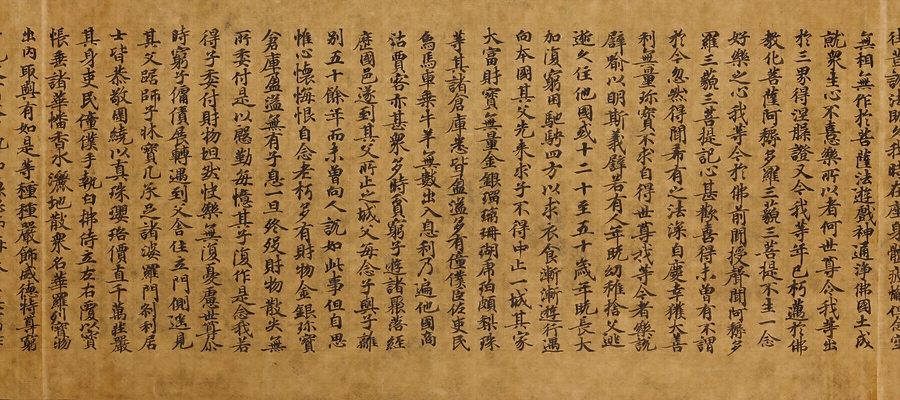 無相無作於菩薩法遊戲神通淨佛國土成
就衆生心不喜樂所以者何世尊令我等出
於三界得涅槃證又今我等年已朽邁於佛
教化菩薩阿耨多羅三藐三菩提不生一念
好樂之心我等今於佛前聞授聲聞阿耨多
羅三藐三菩提記心甚歡喜得未曾有不謂
於今忽然得聞希有之法深自慶幸獲大善
利無量珎寶不求自得世尊我等今者樂說
譬喻以明斯義譬若有人年既幼稚捨父逃
逝久住他國或十二十至五十歲年既長大
加復窮困馳騁四方以求衣食漸漸遊行遇
向本國其父先來求子不得中止一城其家
大富財寶無量金銀瑠璃珊瑚虎珀頗梨珠
等其諸倉庫悉皆盈溢多有僮僕臣佐吏民
烏馬車乘牛羊無數出入息利乃遍他國商
沽賈客亦甚衆多時貧窮子遊諸聚落經
歷國邑遂到其父所止之城父每念子與子離
別五十餘年而未曾向人說如此事但自思
惟心懷悔恨自念老朽多有財物金銀珎寶
倉庫盈溢無有子息一旦終歿財物散失無
所委付是以慇懃每憶其子復作是念我若
得子委付財物坦然快樂無復憂慮世尊尒
時窮子傭賃展轉遇到父舍住立門側遙見
其父踞師子牀寶几承足諸婆羅門剎利居
士皆恭敬圍繞以真珠瓔珞價直千萬莊嚴
其身吏民僮僕手執白拂侍立左右覆以寶
帳垂諸華幡香水灑地散衆名華羅列寶物
出內取與有如是等種種嚴飾威德特尊窮